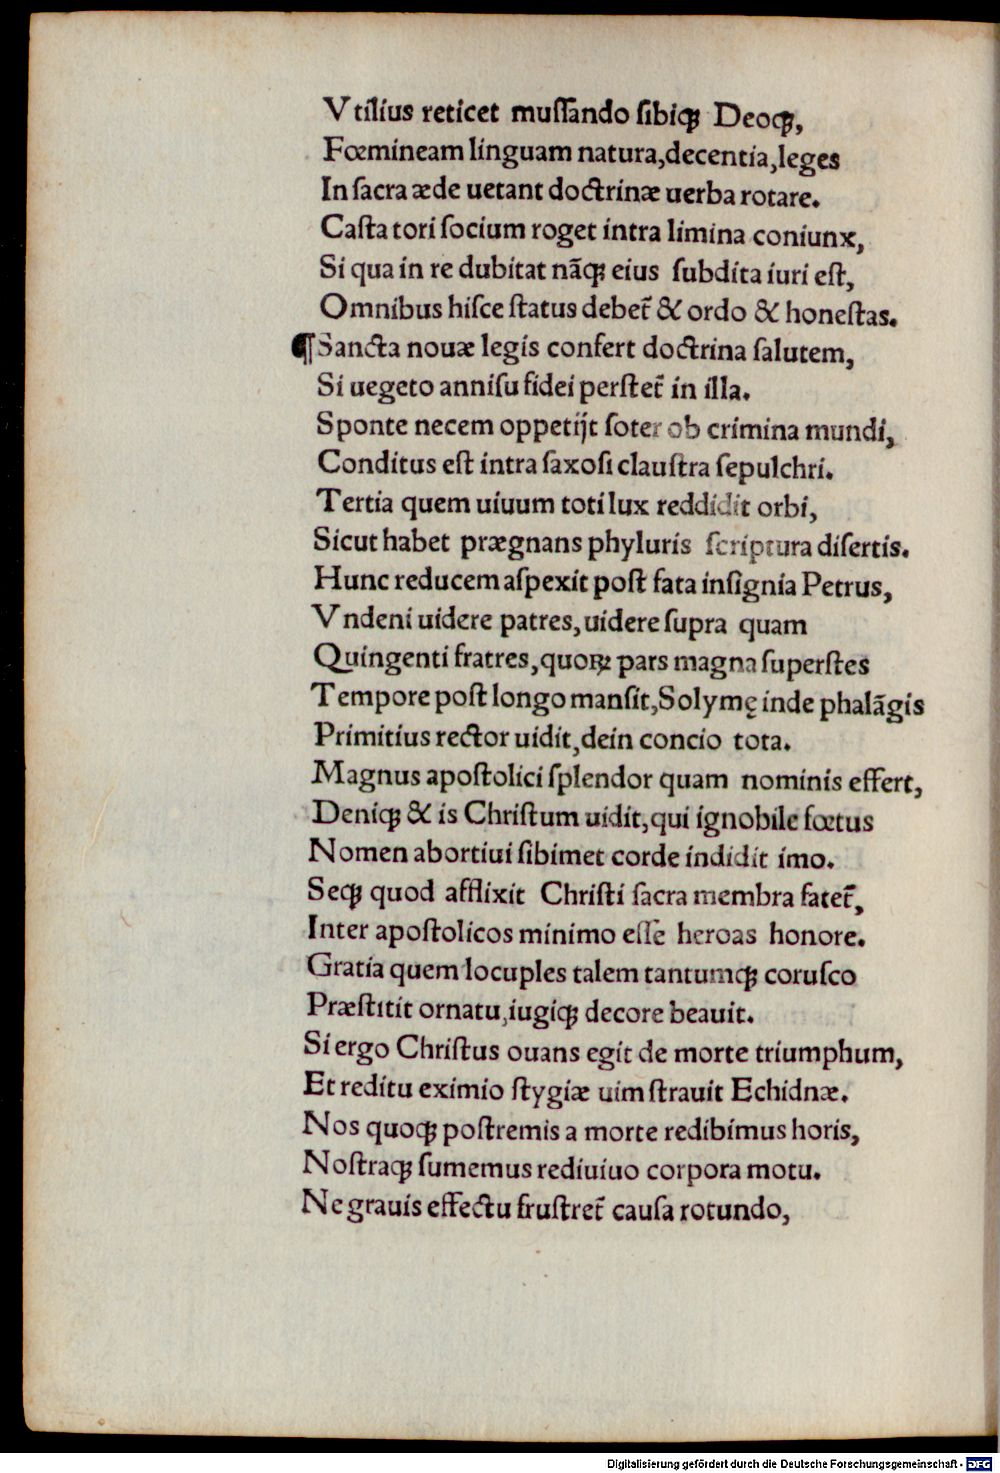 Vtilius reticet muſſando ſibiqꝫ Deoqꝫ,
Fœmineam linguam natura,decentia,leges
In ſacra æde uetant doctrinæ uerba rotare.
Caſta tori ſocium roget intra limina coniunx,
Si qua in re dubitat nāqꝫ eius ſubdita iuri eſt,
Omnibus hiſce ſtatus debet̃ & ordo & honeſtas.
¶Sancta nouæ legis confert doctrina ſalutem,
Si uegeto anniſu fidei perſtet̃ in illa.
Sponte necem oppetijt ſoter ob crimina mundi,
Conditus eſt intra ſaxoſi clauſtra ſepulchri.
Tertia quem uiuum toti lux reddidit orbi,
Sicut habet prægnans phyluris ſcriptura diſertis.
Hunc reducem aſpexit poſt fata inſignia Petrus,
Vndeni uidere patres,uidere ſupra quam
Quingenti fratres,quoꝝ pars magna ſuperſtes
Tempore poſt longo manſit,Solymę inde phalāgis
Primitius rector uidit,dein concio tota.
Magnus apoſtolici ſplendor quam nominis effert,
Deniqꝫ & is Chriſtum uidit,qui ignobile fœtus
Nomen abortiui ſibimet corde indidit imo.
Seqꝫ quod afflixit Chriſti ſacra membra fatet̃,
Inter apoſtolicos minimo eſſe heroas honore.
Gratia quem locuples talem tantumqꝫ coruſco
Præſtitit ornatu,iugiqꝫ decore beauit.
Si ergo Chriſtus ouans egit de morte triumphum,
Et reditu eximio ſtygiæ uim ſtrauit Echidnæ.
Nos quoqꝫ poſtremis a morte redibimus horis,
Noſtraqꝫ ſumemus rediuiuo corpora motu.
Ne grauis effectu fruſtret̃ cauſa rotundo,
Digitalisierung gefördert durch die Deutsche Forschungsgemeinschaft - DFG